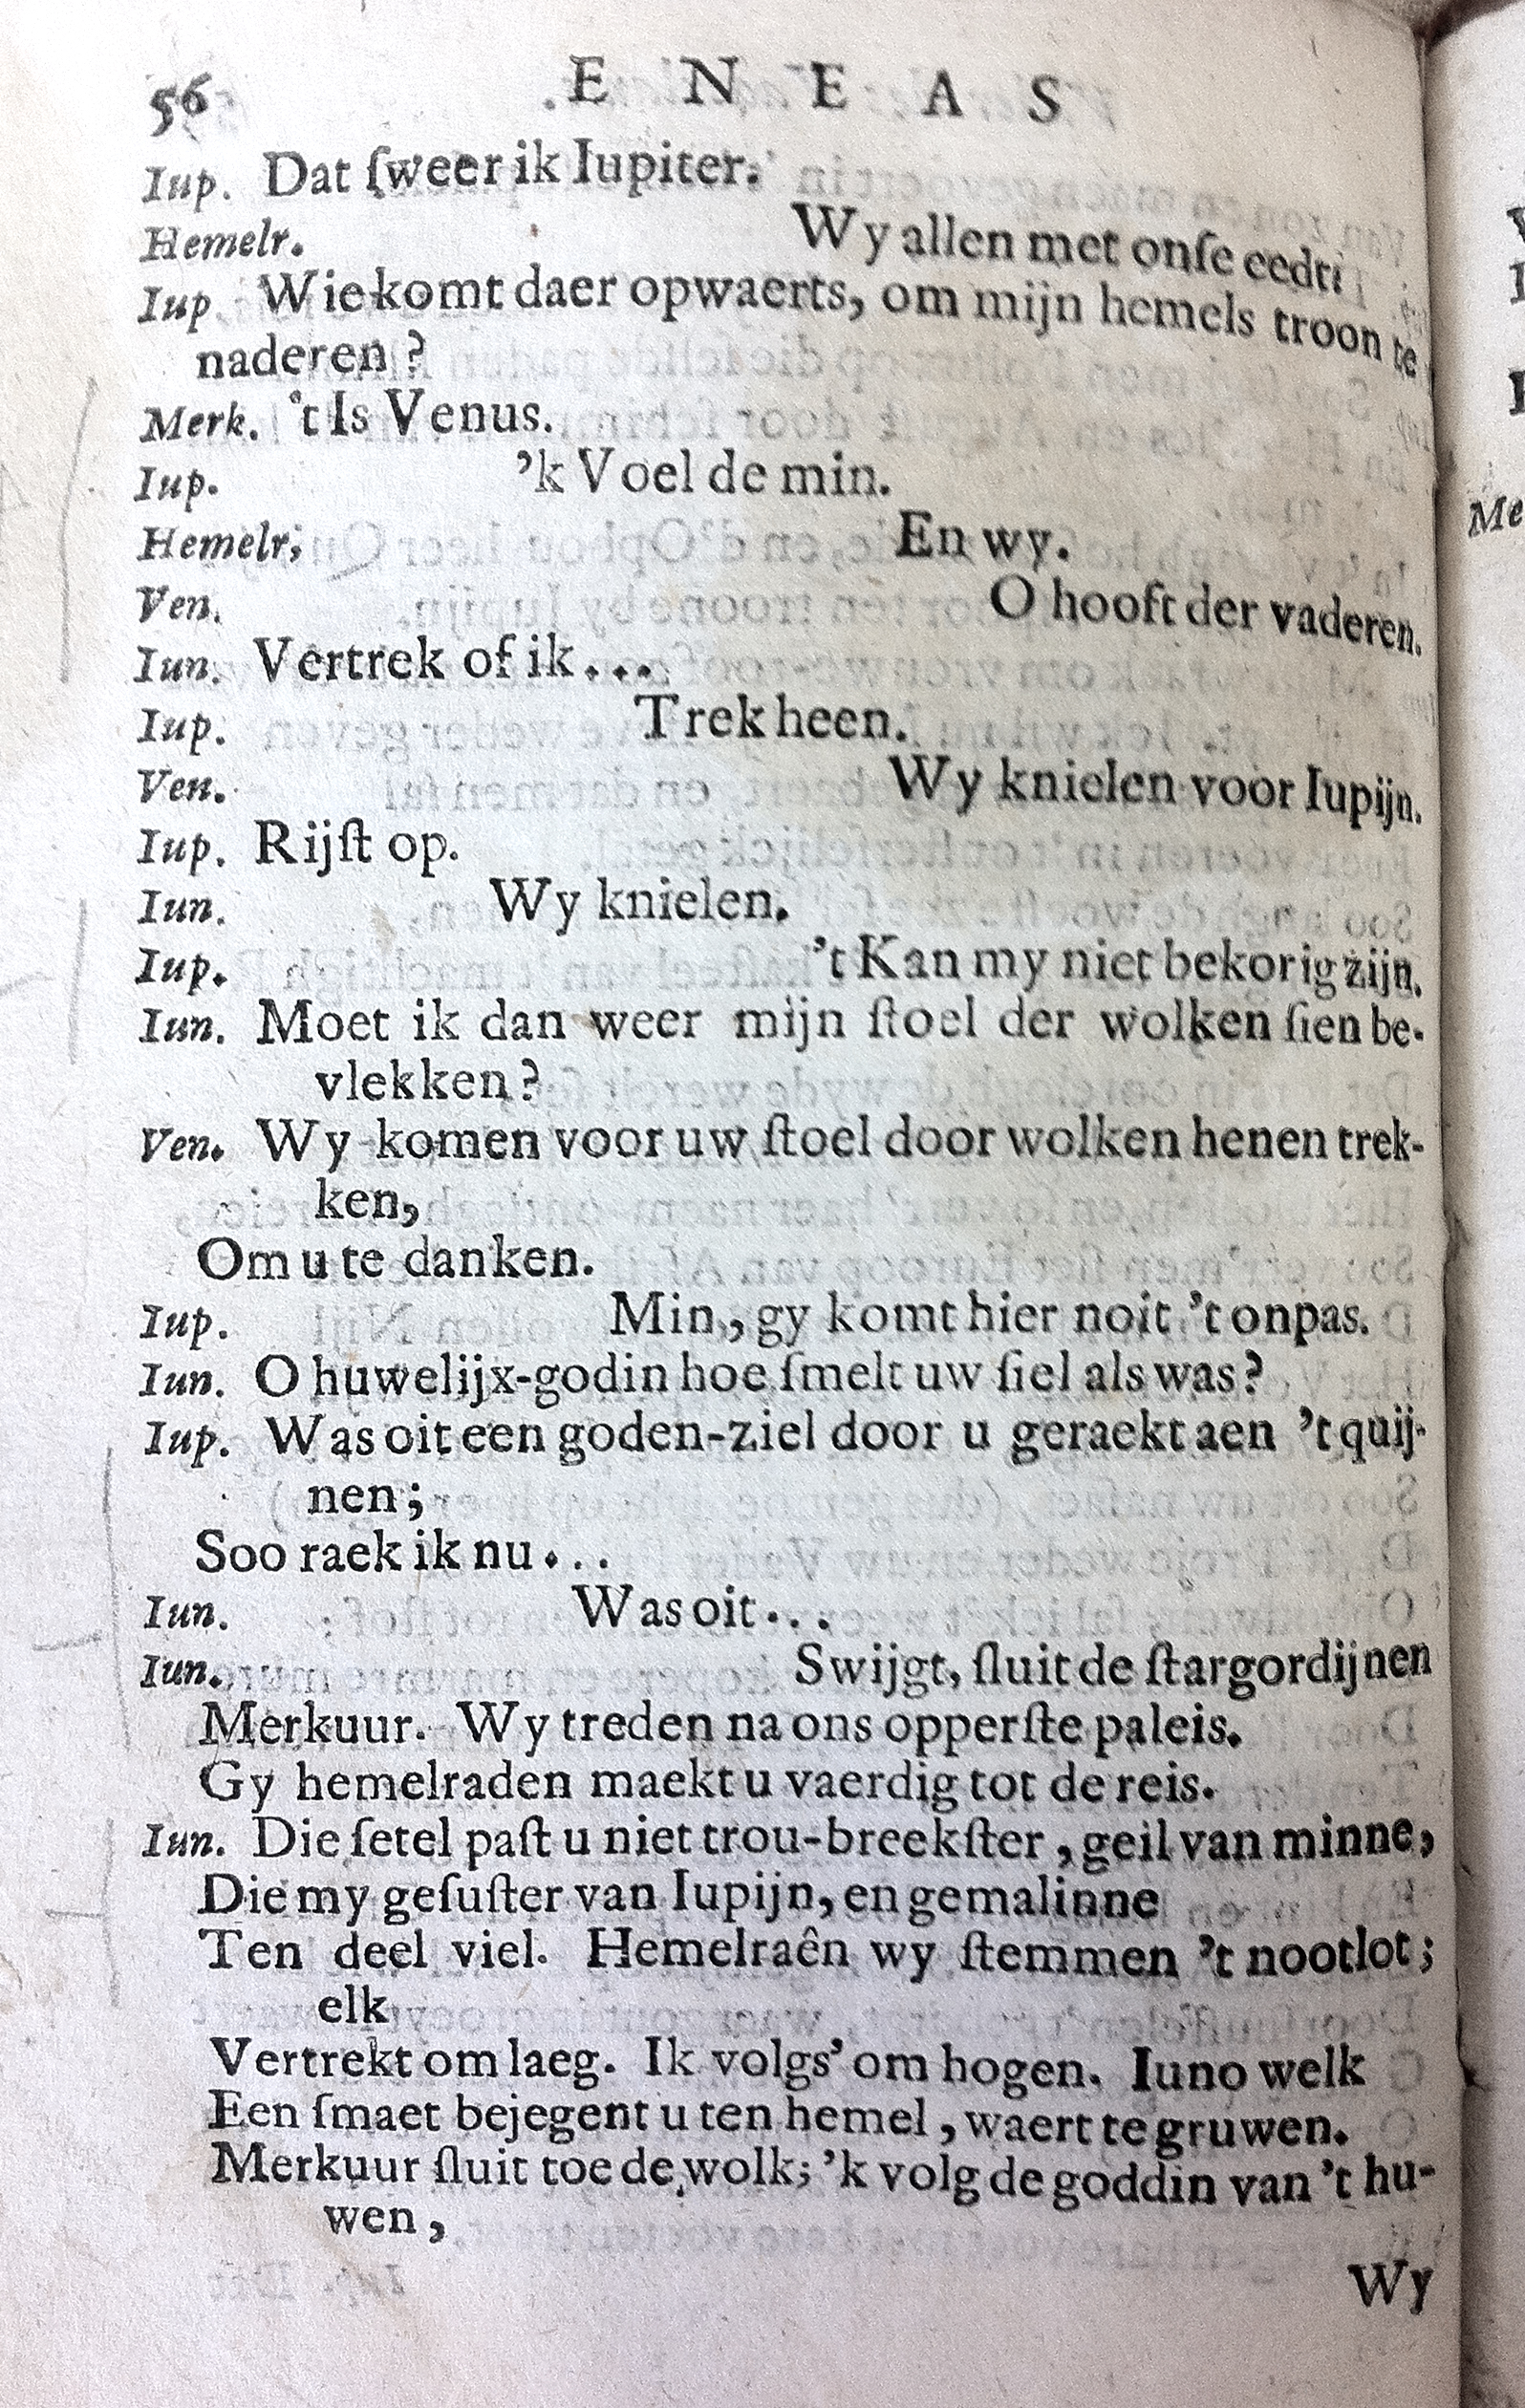 56 E N E A S
Iup. Dat ſweer ik Iupiter.
Hemelr. Wy allen met onſe eedt:
Iup Wie komt daer opwaerts, om mijn hemels troon te
naderen?
Merk. 't Is Venus.
Iup. 'k Voel de min.
Hemelr; En wy.
Ven. O hooft der vaderen.
Iun. Vertrek of ik...
Iup. Trek heen.
Ven. Wy knielen voor Iupijn.
Iup. Rijſt op.
Iun. Wy knielen.
Iup. 't Kan my niet bekorig zijn.
Iun. Moet ik dan weer mijn ſtoel der wolken ſien be-
vlekken?
Ven. Wy komen voor uw ſtoel door wolken henen trek-
ken,
Om u te danken.
Iup. Min, gy komt hier noit 't onpas.
Iun. O huwelijx-godin hoe ſmelt uw ſiel als was?
Iup. Was oit een goden-ziel door u geraekt aen 't quij-
nen;
Soo raek ik nu...
Iun. Was oit...
Iun. Swijgt, ſluit de ſtargordijnen
Merkuur. Wy treden na ons opperſte paleis.
Gy hemelraden maekt u vaerdig tot de reis.
Iun. Die ſetel paſt u niet trou-breekſter, geil van minne,
Die my geſuſter van Iupijn, en gemalinne
Ten deel viel. Hemelraên wy ſtemmen 't nootlot;
elk
Vertrekt om laeg. Ik volgs' om hogen. Iuno welk
Een ſmaet bejegent u ten hemel, waert te gruwen.
Merkuur ſluit toe de wolk; 'k volg de goddin van 't hu-
wen,
Wy